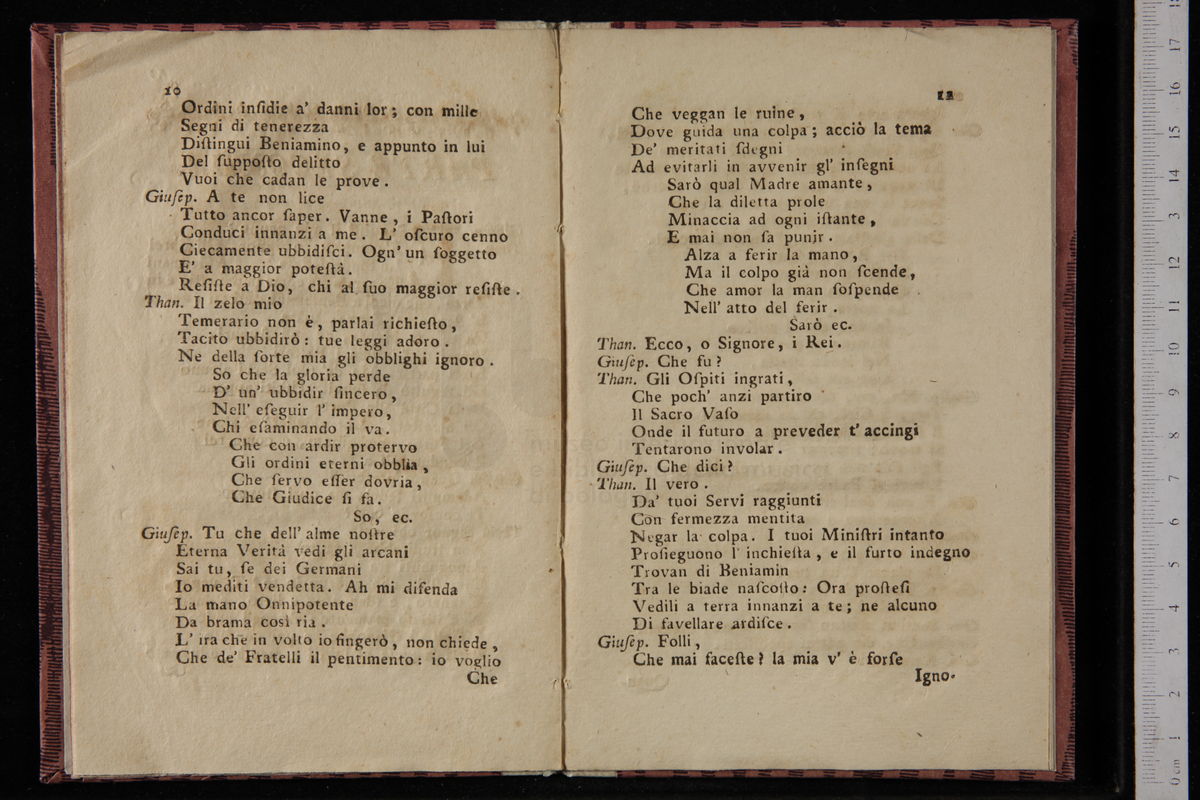 10
Ordini inſidie a' danni lor; con mille
Segni di tenerezza
Diſtingui Beniamino, e appunto in lui
Del ſuppoſto delitto
Vuoi che cadan le prove.
Giuſep. A te non lice
Tutto ancor ſaper. Vanne, i Paſtori
Conduci innanzi a me. L' oſcuro cenno
Ciecamente ubbidiſci. Ogn' un ſoggetto
E' a maggior poteſtà.
Reſiſte a Dio, chi al ſuo maggior reſiſte.
Than. Il zelo mio
Temerario non è, parlai richieſto,
Tacito ubbidirò: tue leggi adoro.
Ne della ſorte mia gli obblighi ignoro.
So che la gloria perde
D' un' ubbidir ſincero,
Nell' eſeguir l' impero,
Chi eſaminando il va.
Che con ardir protervo
Gli ordini eterni obblia,
Che ſervo eſſer dovria,
Che Giudice ſi fa.
So, ec.
Giuſep. Tu che dell' alme noſtre
Eterna Verità vedi gli arcani
Sai tu, ſe dei Germani
Io mediti vendetta. Ah mi difenda
La mano Onnipotente
Da brama così ria.
L' ira che in volto io fingerò, non chiede,
Che de' Fratelli il pentimento: io voglio
Che
11
Che veggan le ruine,
Dove guida una colpa; acciò la tema
De' meritati ſdegni
Ad evitarli in avvenir gl' inſegni
Sarò qual Madre amante,
Che la diletta prole
Minaccia ad ogni iſtante,
E mai non ſa punir.
Alza a ferir la mano,
Ma il colpo già non ſcende,
Che amor la man ſoſpende
Nell' atto del ferir.
Sarò ec.
Than. Ecco, o Signore, i Rei.
Giuſep. Che fu?
Than. Gli Oſpiti ingrati,
Che poch' anzi partiro
Il Sacro Vaſo
Onde il futuro a preveder t' accingi
Tentarono involar.
Giuſep. Che dici?
Than. Il vero.
Da' tuoi Servi raggiunti
Con fermezza mentita
Negar la colpa. I tuoi Miniſtri intanto
Proſieguono l' inchieſta, e il furto indegno
Trovan di Beniamin
Tra le biade naſcoſto: Ora proſteſi
Vedili a terra innanzi a te; ne alcuno
Di favellare ardiſce.
Giuſep. Folli,
Che mai faceſte? la mia v' è forſe
Igno-